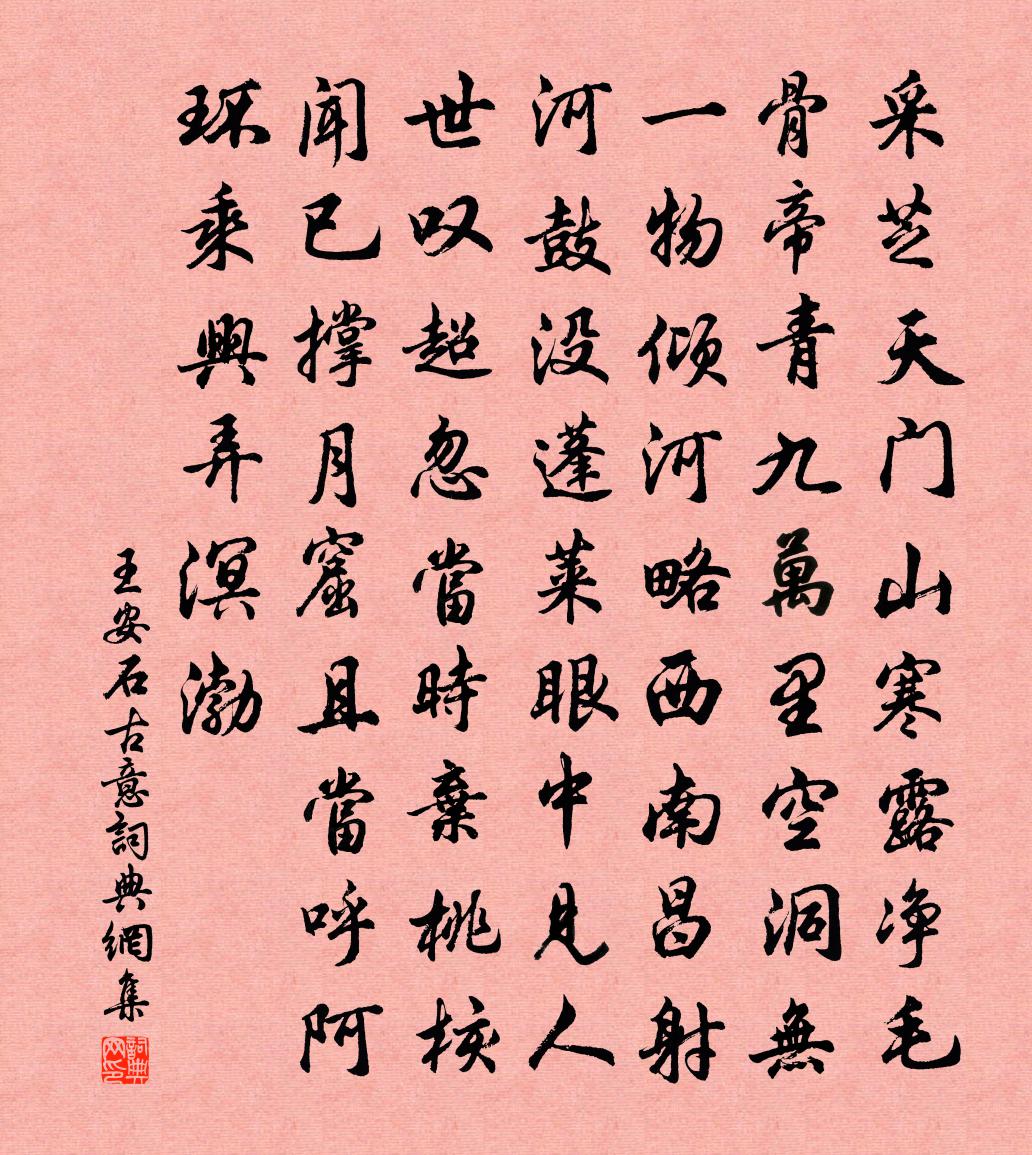 采芝天门山寒露净毛
骨帝青九萬里空洞無
一物倾河略西南昌射
河鼓没蓬莱眼中見人
世叹超忽當時棄桃核
闻已撑月窟且當呼阿
环乘興弄溟渤
王安石古意詞典網集
詞典网印